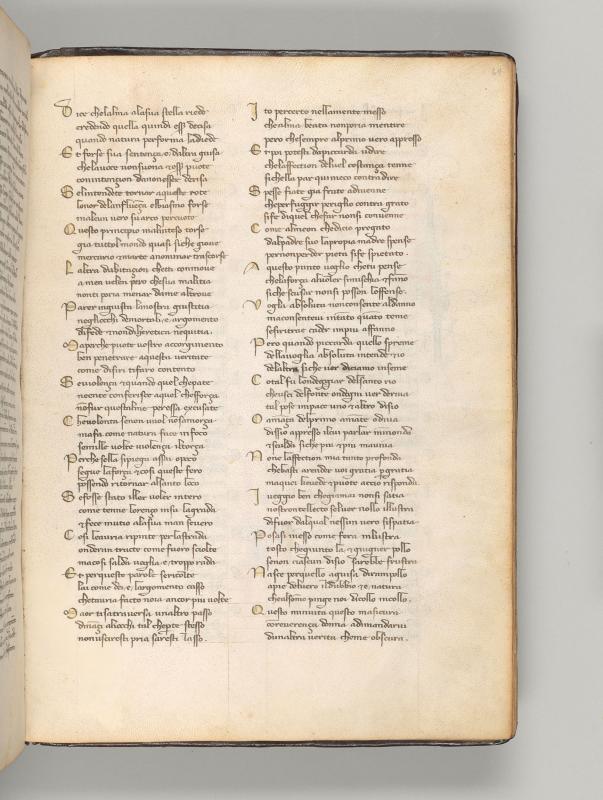 64
Dice chelalma alasua stella riede
credendo quella quindi esser decisa
quando natura performa ladiede
Et forse sua sentença e daltra guisa
chelauoce nonsuona et essi puote
conintençion danonesser derisa
Selintende tornar aqueste rote
lonor delainfluença elbiasimo forse
inalcun uero suo arco percuote
Questo principio malinteso torse
gia tuttol mondo quasi siche gioue
mercurio et marte anominar trascorse
Laltra dubitacion cheti commoue
a men uelen pero chesua malitia
nonti poria menar dame altroue
Parer ingiusta lanostra giustitia
negliocchi demortali e argomento
difede et nondheretica nequitia.
Ma perche puote uostro accorgimento
ben penetrare aquesta ueritate
come disiri tifaro contento
Se uiolença et quando quel chepate
neente conferisce aquel chefforça
nofur questalme peressa excusate
Che uolonta senon uuol nosamorça
ma fa come natura face infoco
semille uolte uiolença iltorça
Perche sella sipiega assai opoco
segue laforça et cosi queste fero
possendo ritornar alsanto loco
Se fosse stato illor uoler intero
come tenne lorenço insu lagrada
et fece mutio alasua man seuero
Cosi lauria ripinte perlastrada
onderan tracte come fuoro sciolte
ma cosi salda uoglia e troppo rada
Et perqueste parole sericolte
lai come dei e largomento casso
chetauria facto noia ancor piu uolte
Ma or tisatrauersa unaltro passo
dinançi aliocchi tal cheperte stesso
nonusciresti pria saresti lasso.
Io to percerto nellamente messo
chealma beata nonporia mentire
pero chesempre alprimo uero appresso
Et poi potesti dapiccarda udire
chelaffection deluel costança tenne
sichella par qui meco contradire
Spesse fiate gia frate aduenne
cheperfuggir periglio contra grato
sife diquel chefar nonsi conuenne
Come almeon chedicio pregato
dalpadre suo lapropia madre spense
pernonperder pieta sife spietato.
A questo punto uoglio chetu pense
chelaforça aluoler simischia et fano
siche scusar nonsi posson loffense.
Voglia absoluta nonconsente aldanno
maconsentevi intato quato teme
seseritrae cader impiu affanno
Pero quando piccarda quello spreme
dellauoglia absoluta intende et io
delaltra siche uer diciamo insieme
Cotal fu londeggiar delsanto rio
cheusci delfonte ondogni uer deriua
tal pose inpace uno et altro disio
O amança delprimo amante odiua
dissio appresso ilcui parlar minonda
et scalda siche piu et piu mauiua
Non e laffection mia tanto profonda
chebasti arender uoi gratia per gratia
maquei keuede et puote acio risponda
Iueggio ben chegiamai nonsi satia
nostrontellecto seluer nollo illustra
difuor dalqual nessun uero sispatia
Posasi inesso come fera inlustra
tosto chegiunto la et giugner pollo
senon ciascun disio sarebbe frustra
Nasce perquello aguisa dirampollo
apie deluero ildubbio et e natura
chealsommo pinge noi dicollo incollo.
Questo minuita questo masicura
conreuerença donna adimandarui
dunaltra uerita cheme obscura.